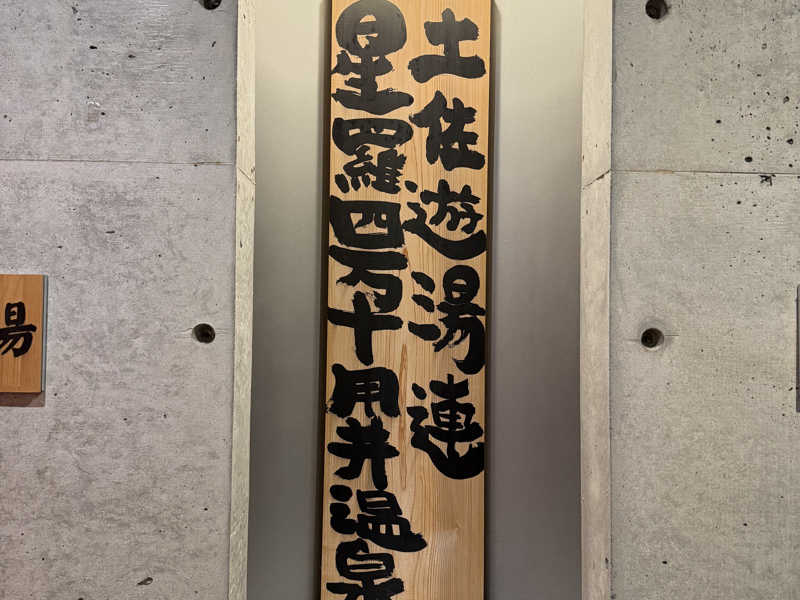 土佐遊湯連
星羅四万十用井温泉
湯